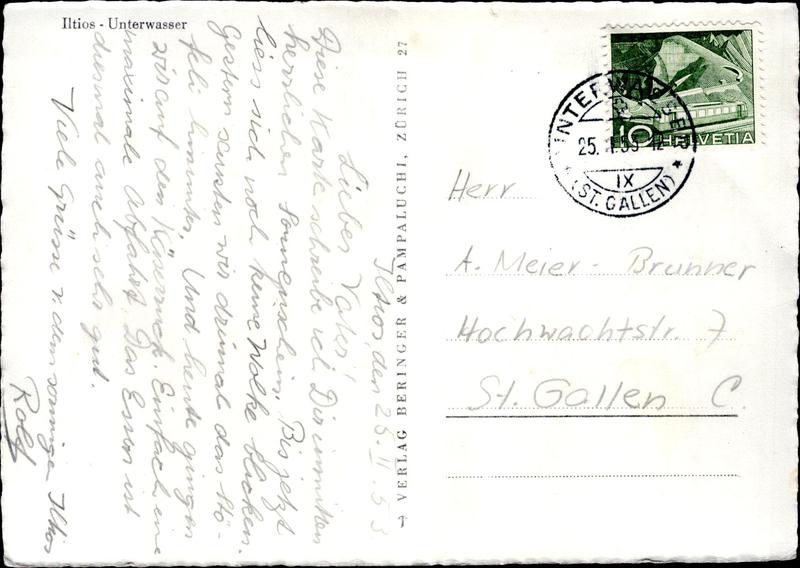 Iltios - Unterwasser
Iltios den 25. II. 53
Lieber Vater!
Diese Karte schreibe ich Dir inmitten
herrlichem Sonnenschein. Bis jetzt
liess sich noch keine Wolke blicken.
Gestern sausten wir dreimal das Stö-
feli hinunter. Und heute gingen
wir auf den Käserruck. Einfach eine
maximale Abfahrt. Das Essen ist
diesmal auch sehr gut.
Viele Grüsse v. dem sonnigen Iltios
Rolf
VERLAG BERINGER & PAMPALUCHI, ZÜRICH 27
UNTERWASSER
25. II. 53 12
IX
* (ST. GALLEN) *
10 HELVETIA
Herr
A. Meier - Brunner
Hochwachtstr. 7
St. Gallen C.